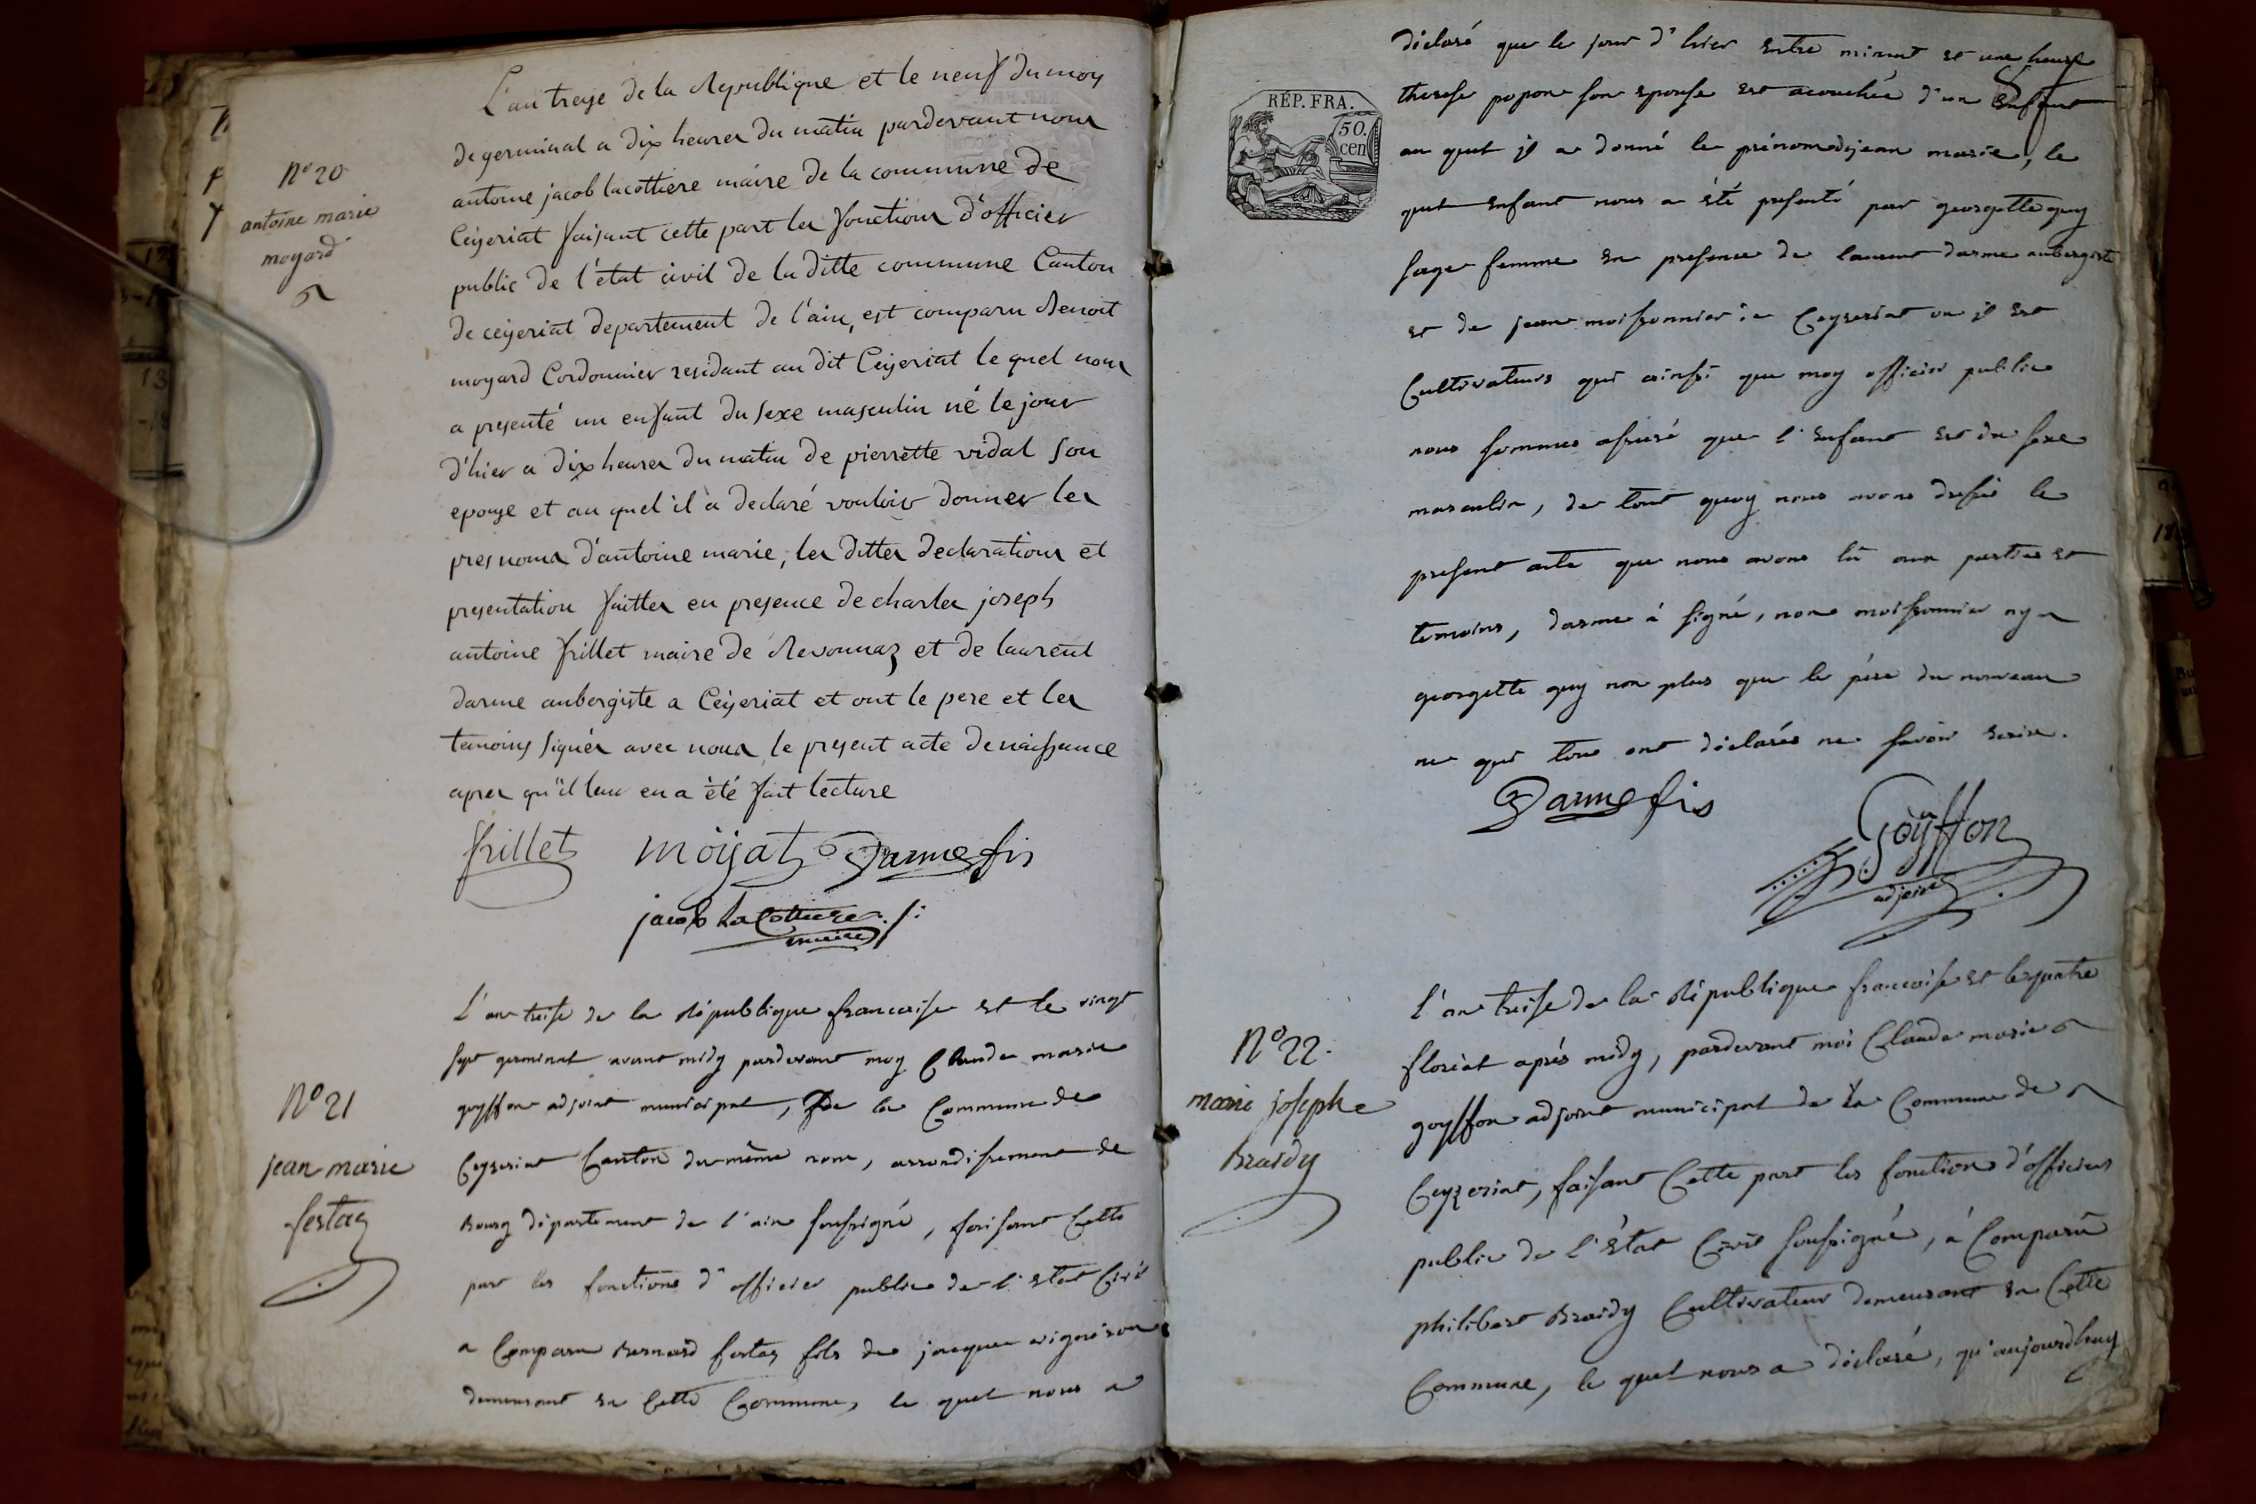 L'an treize de la Republique et le neuf du moy
de germinal a dix heures du matin pardevant nous
N° 20
antoine marie
moyard
antoine jacob lacottiere maire de la commune de
Ceyzeriat faisant cette part les fonctions d'officier
public de l'état civil de la ditte commune Canton
de ceyzeriat departement de l'ain, est comparu Benoit
moyard Cordonnier residant au dit Ceyzeriat le quel nous
a presenté un enfant du sexe masculin né le jour
d'hier a dix heures du matin de pierrette vidal son
epouze et au quel il a declaré vouloir donner les
presnoms d'antoine marie, les dittes declarations et
presentation faittes en presence de charles joseph
antoine frillet maire de Revonnaz et de laurent
darme aubergiste a Ceyzeriat et ont le pere et les
temoins signés avec nous le present acte de naissance
apres qu'il leur en a été fait lecture
frillet moÿat Darme fis
jacob LaCottiere
maire
L'an treise de la République francaise et le vingt
sept germinal avant midy pardevant moy Claude marie
N° 21
jean marie
festaz
goyffon adjoint municipal, De la Commune de
Ceyzeriat Canton du même nom, arrondissement de
Bourg département de l'ain soussigné, faisant Cette
part les fonctions d'officier public de l'état Civil
a Comparu Bernard festaz fils de jacque vigneron
demeurant en Cette Commune, le quel nous a
RÉP. FRA.
50.
cen
déclaré que le jour d'hier entre minuit et une heure
therese popon son epouse est acouchée d'un Enfant
au quel il a donné le prénom de jean marie, le
quel enfant nous a été presenté par georgette guy
sage femme en presence de laurent darme aubergiste
et de jean moissonnier in Ceyzeriat ou il est
Cultivateurs qui ainsi que moy officier public
nous sommes assuré que l'enfant est du sexe
masculin, de tout quoy nous avons dressé le
present acte que nous avons lû aux parties et
temoins, darme à signé, non moissonnier ny
georgette guy non plus que le pére du nouveau
né qui tous ont déclarés ne savoir ecrire.
Darme fis
Goÿffon
adjoint
N° 22.
marie josephe
Braidy
l'an treise de la République francoise et le quatre
floréal aprés midy, pardevant moi Claude marie
goyffon adjoint municipal de la Commune de
Ceyzeriat, faisant Cette part les fonctions d'officier
public de l'état Civil soussigné, à Comparû
philibert Braidy Cultivateur demeurant en Cette
Commune, le quel nous a déclaré, qu'aujourdhuy